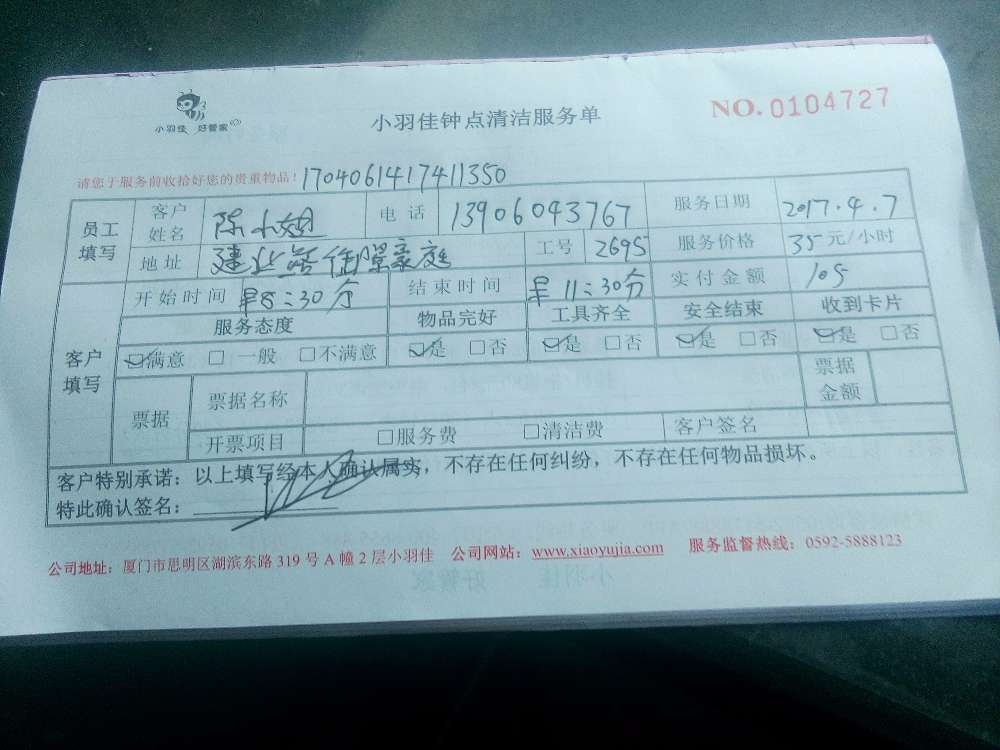 小羽佳 好管家
小羽佳钟点清洁服务单
NO.0104727
请您于服务前收拾好您的贵重物品！1704061417411350
员工填写 客户姓名 陈小姐 电话 13906043767 服务日期 2017.4.7
地址 建业路御景豪庭 工号 2695 服务价格 35元/小时
客户填写 开始时间 早8:30分 结束时间 早11:30分 实付金额 105
服务态度 物品完好 工具齐全 安全结束 收到卡片
☑满意 □一般 □不满意 ☑是 □否 ☑是 □否 ☑是 □否 ☑是 □否
票据 票据名称 票据金额
开票项目 □服务费 □清洁费 客户签名
客户特别承诺：以上填写经本人确认属实，不存在任何纠纷，不存在任何物品损坏。
特此确认签名：
公司地址：厦门市思明区湖滨东路319号A幢2层小羽佳 公司网站：www.xiaoyujia.com 服务监督热线：0592-5888123